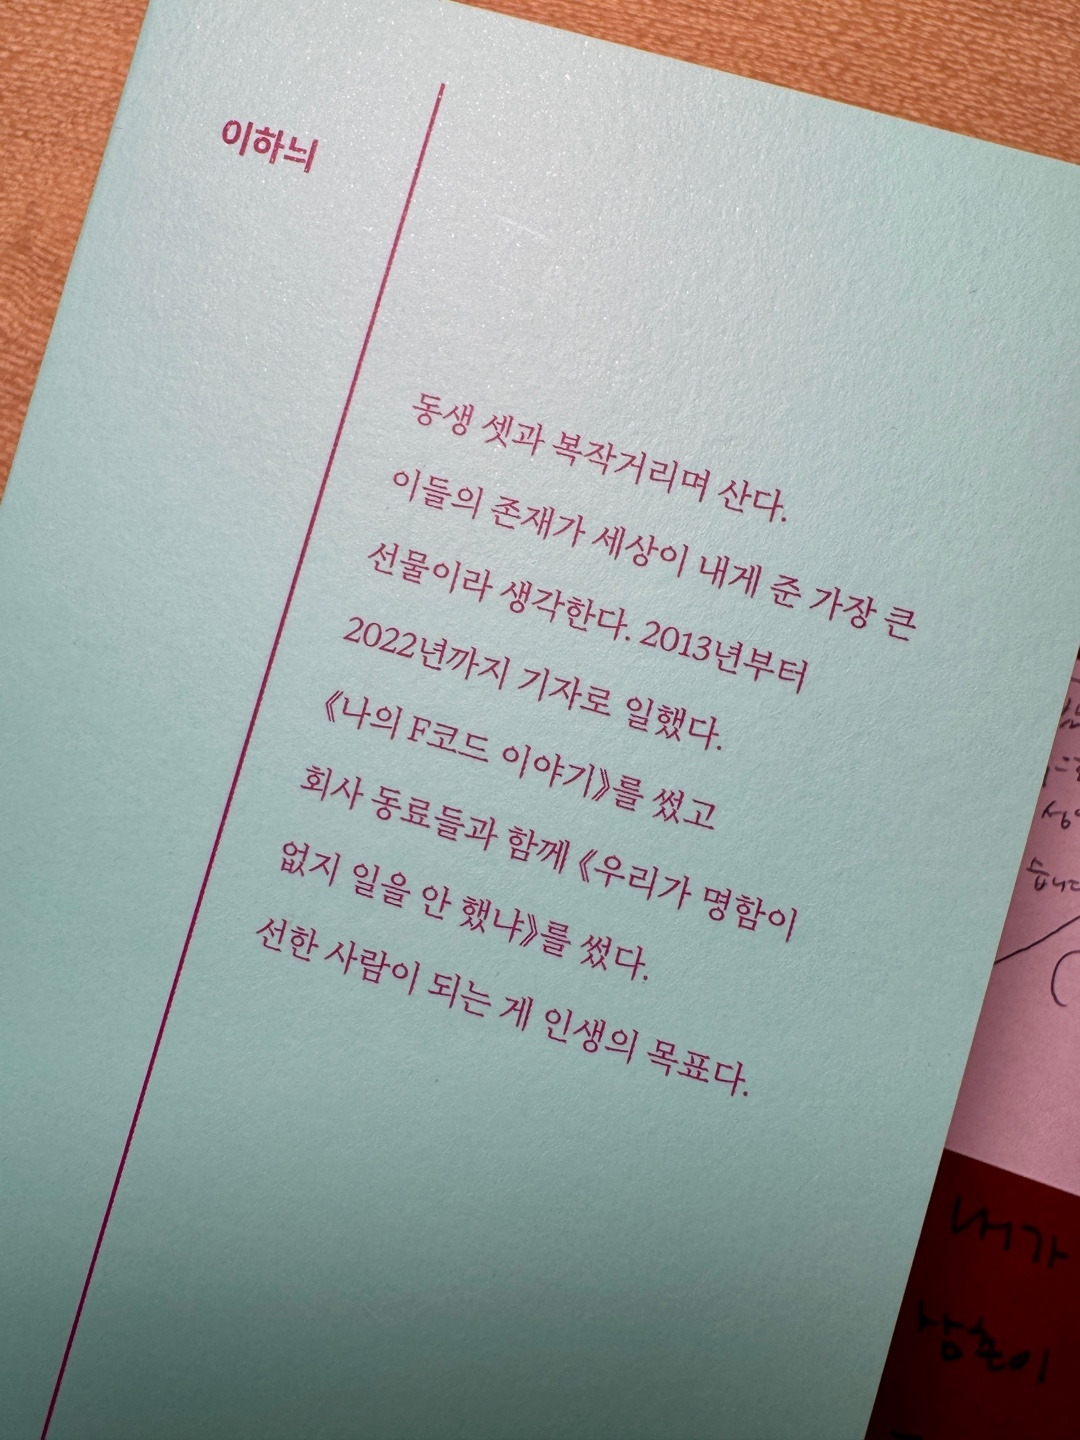 이하늬
동생 셋과 복작거리며 산다.
이들의 존재가 세상이 내게 준 가장 큰
선물이라 생각한다. 2013년부터
2022년까지 기자로 일했다.
《나의 F코드 이야기》를 썼고
회사 동료들과 함께 《우리가 명함이
없지 일을 안 했냐》를 썼다.
선한 사람이 되는 게 인생의 목표다.
습니다
내가
삼촌이